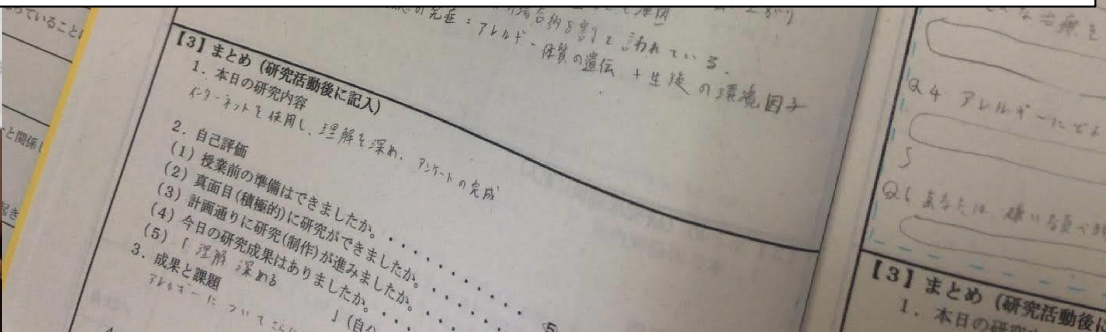 っていること
と関係し
起き
割と言われている。
の発症：アレルギー体質の遺伝 + 生後の環境因子
【3】まとめ（研究活動後に記入）
1．本日の研究内容
インターネットを使用し、理解を深め、アンケートの完成
2．自己評価
(1) 授業前の準備はできましたか。・・・・
(2) 真面目(積極的)に研究ができましたか。・・・・
(3) 計画通りに研究(制作)が進みましたか。・・・・
(4) 今日の研究成果はありましたか。・・・・
(5) 「理解 深める 」(自分
3．成果と課題
アレルギーについてさら
5
な治療を
Q4 アレルギーにどよ
Q6 あなたは、嫌いな食べ物
【3】まとめ（研究活動後に
1．本日の研